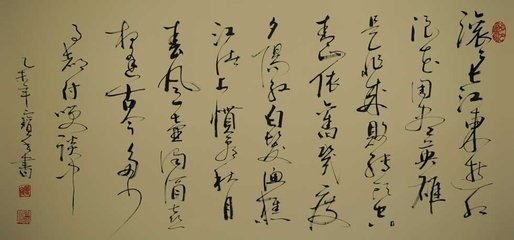 滚〻长江東逝水
浪花淘尽英雄
是非成敗轉頭空
青山依舊在幾度
夕陽红白髮漁樵
江渚上慣看秋月
春風一壺濁酒喜
相逢古今多少
事都付笑談中
乙未年書